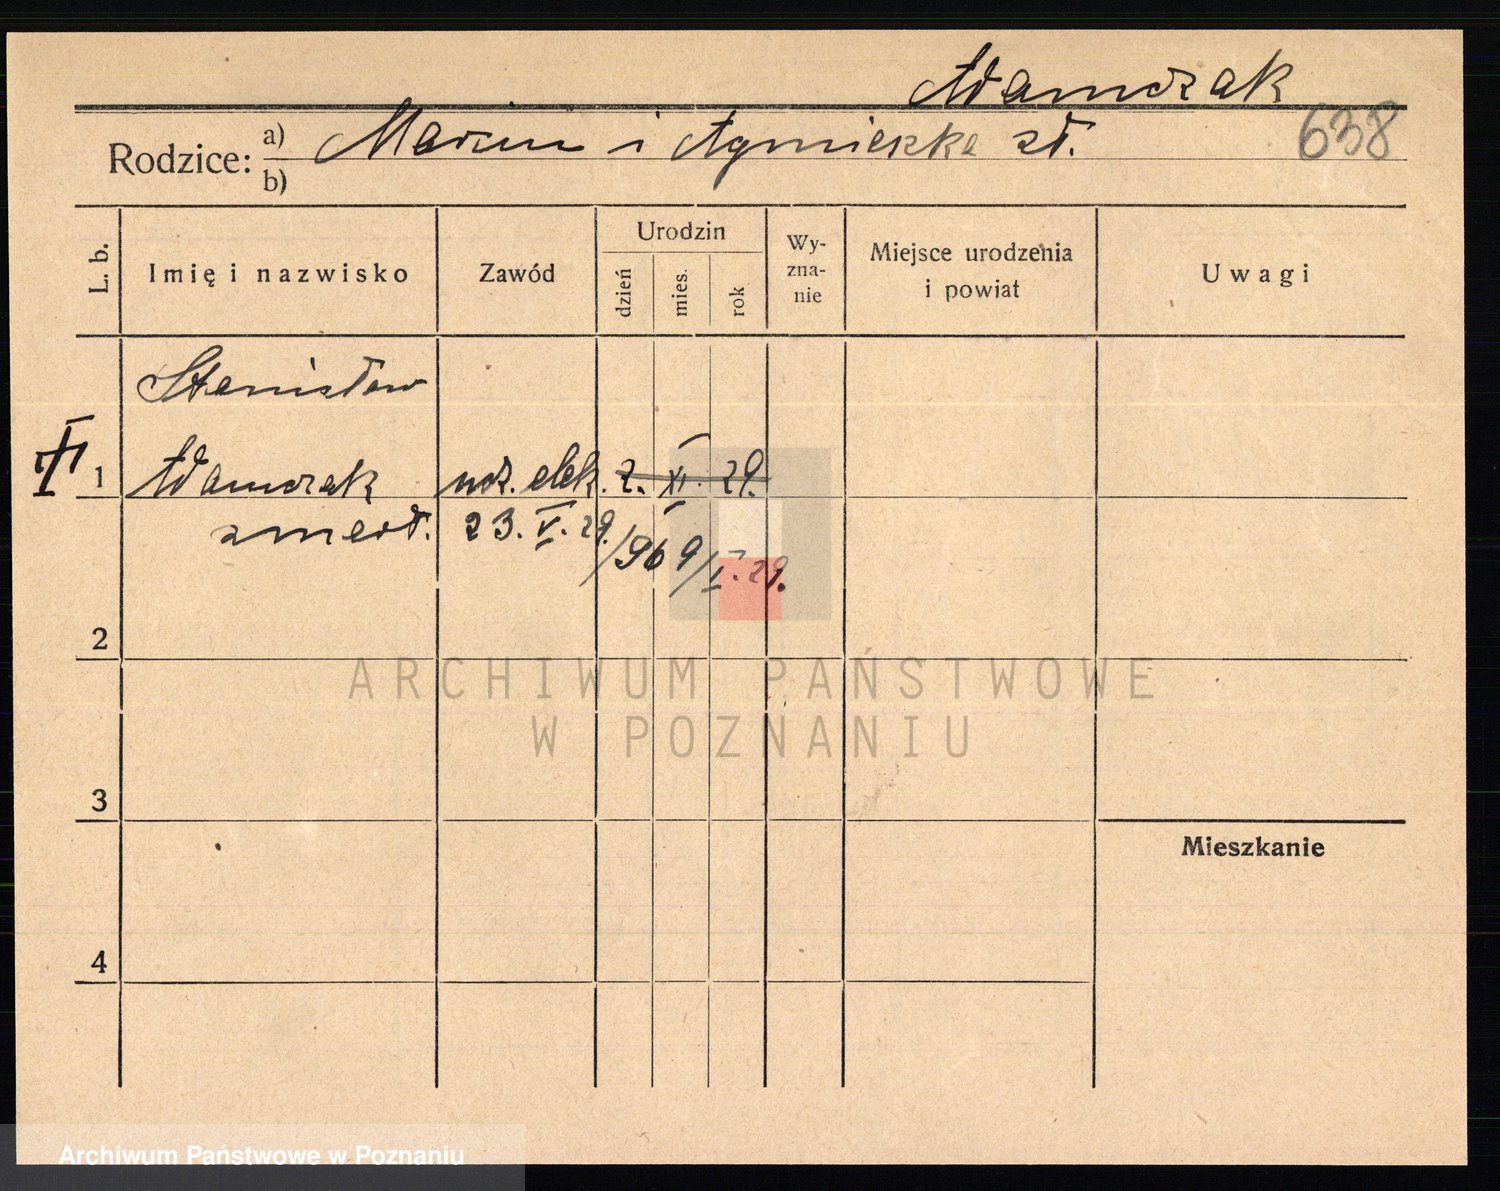 Adamczak
Rodzice: a) Marcin i Agnieszka zł. 638
b)
L. b. Imię i nazwisko Zawód Urodzin dzień mies. rok Wy-zna-nie Miejsce urodzenia i powiat Uwagi
Stanisław
1 Adamczak ucz. elek. 2. XI. 29.
zmarł. 23. V. 29. /969/I. 29.
2
ARCHIWUM PAŃSTWOWE
W POZNANIU
3
Mieszkanie
4
Archiwum Państwowe w Poznaniu